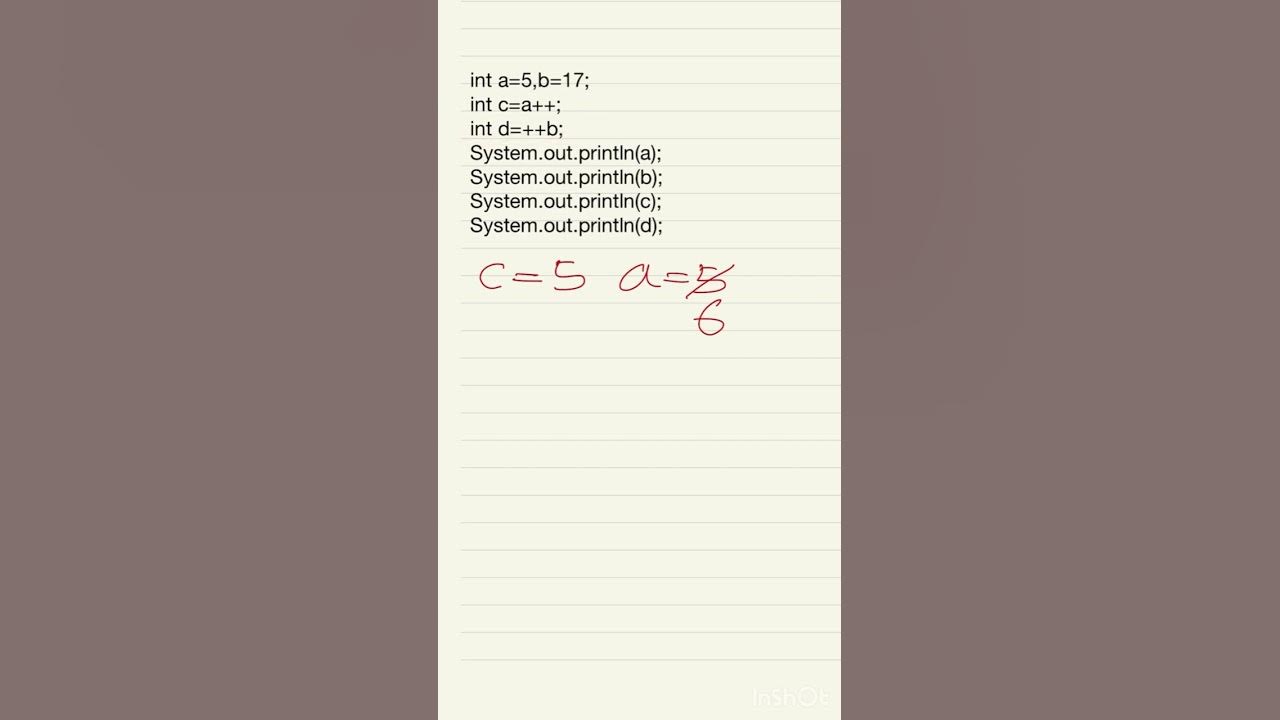 int a=5,b=17;
int c=a++;
int d=++b;
System.out.println(a);
System.out.println(b);
System.out.println(c);
System.out.println(d);
c=5 a=5
6
InShOt